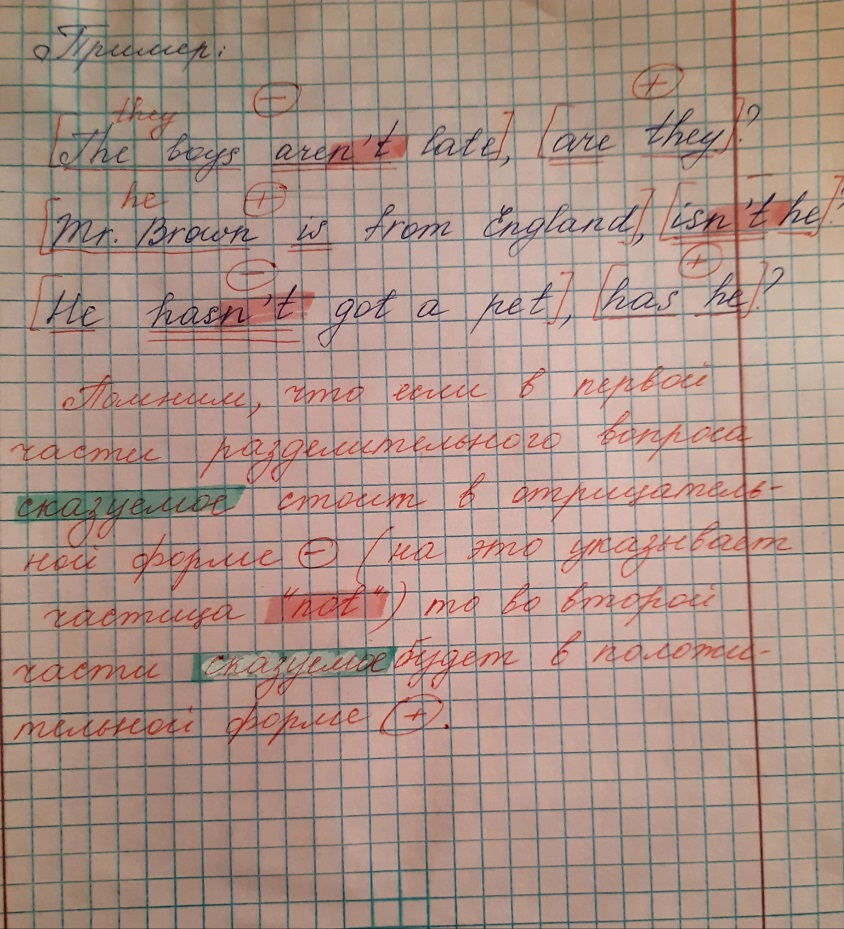 Пример:
they − +
[The boys aren't late], [are they]?
he + −
[Mr. Brown is from England], [isn't he]?
− +
[He hasn't got a pet], [has he]?
Помним, что если в первой
части разделительного вопроса
сказуемое стоит в отрицатель-
ной форме ⊖ (на это указывает
частица "not") то во второй
части сказуемое будет в положи-
тельной форме ⊕.